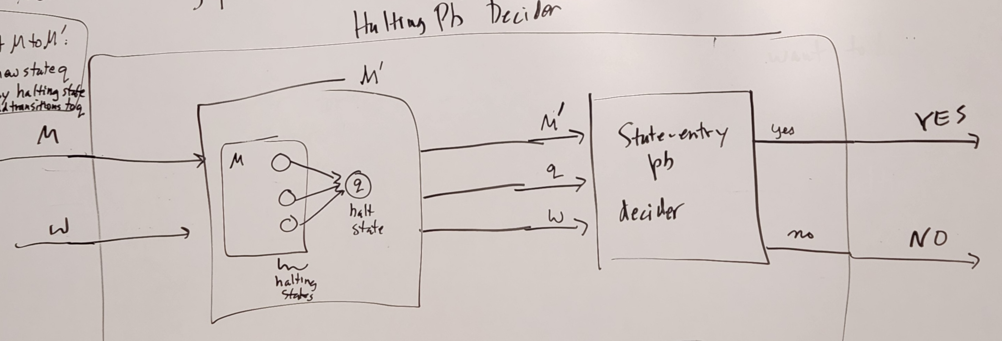 Halting Pb Decider
M to M':
new state q
halting state
transitions to q
M
W
M'
M
q
halt
state
halting
states
M'
q
W
State-entry
pb
decider
yes
no
YES
NO